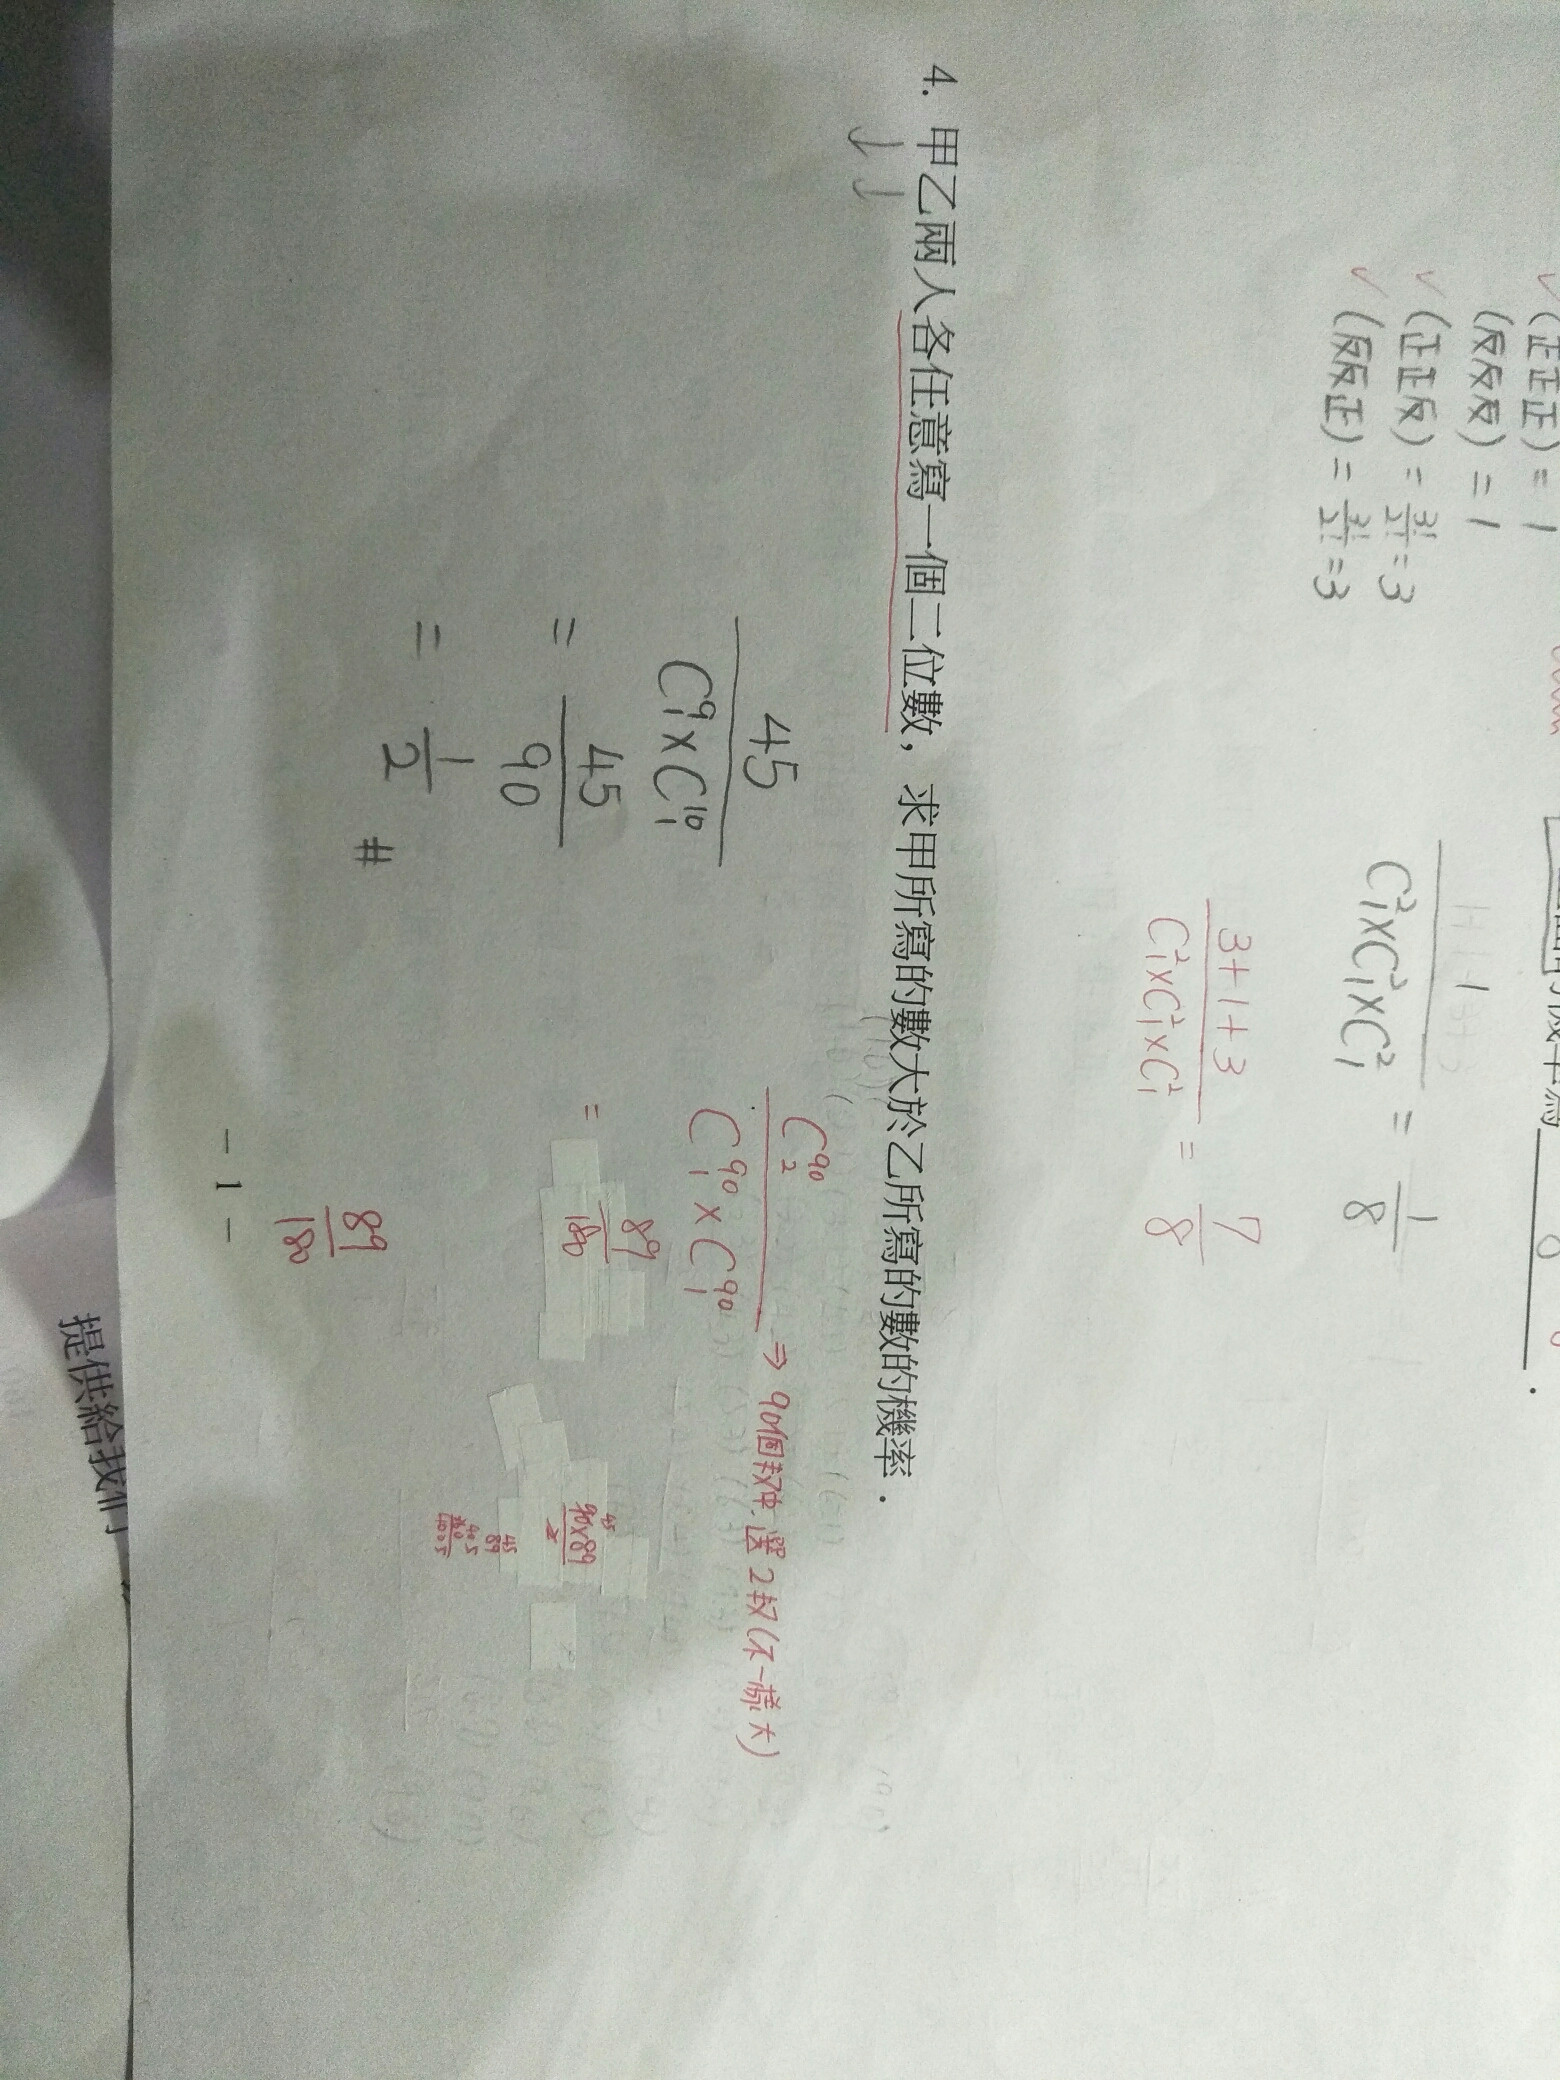 (正正正) = 1
(反反反) = 1
✓ (正正反) = 3!/2! = 3
✓ (反反正) = 3!/2! = 3
1+1 / C²₁×C²₁×C²₁ = 1/8
3+1+3 / C²₁×C²₁×C²₁ = 7/8
4. 甲乙兩人各任意寫一個二位數，求甲所寫的數大於乙所寫的數的機率．
45 / C⁹₁×C¹⁰₁
= 45/90
= 1/2 #
C⁹⁰₂ / C⁹⁰₁×C⁹⁰₁ ⇒ 90個数中選2数(不一樣大)
= 89/180
45
90×89 / 2
45
89
405
360
4005
89/180
- 1 -
提供給我們